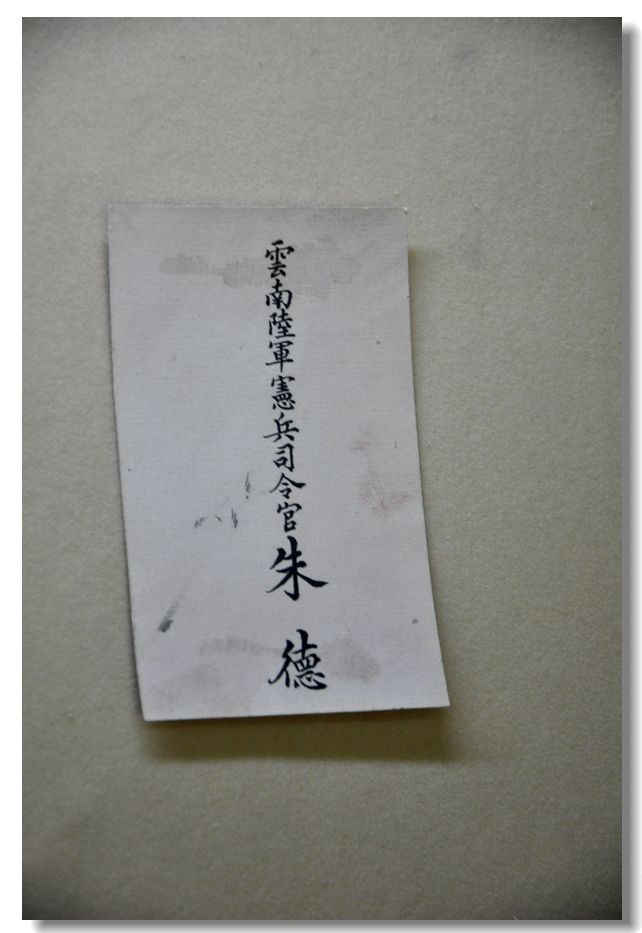 雲南陸軍憲兵司令官朱德